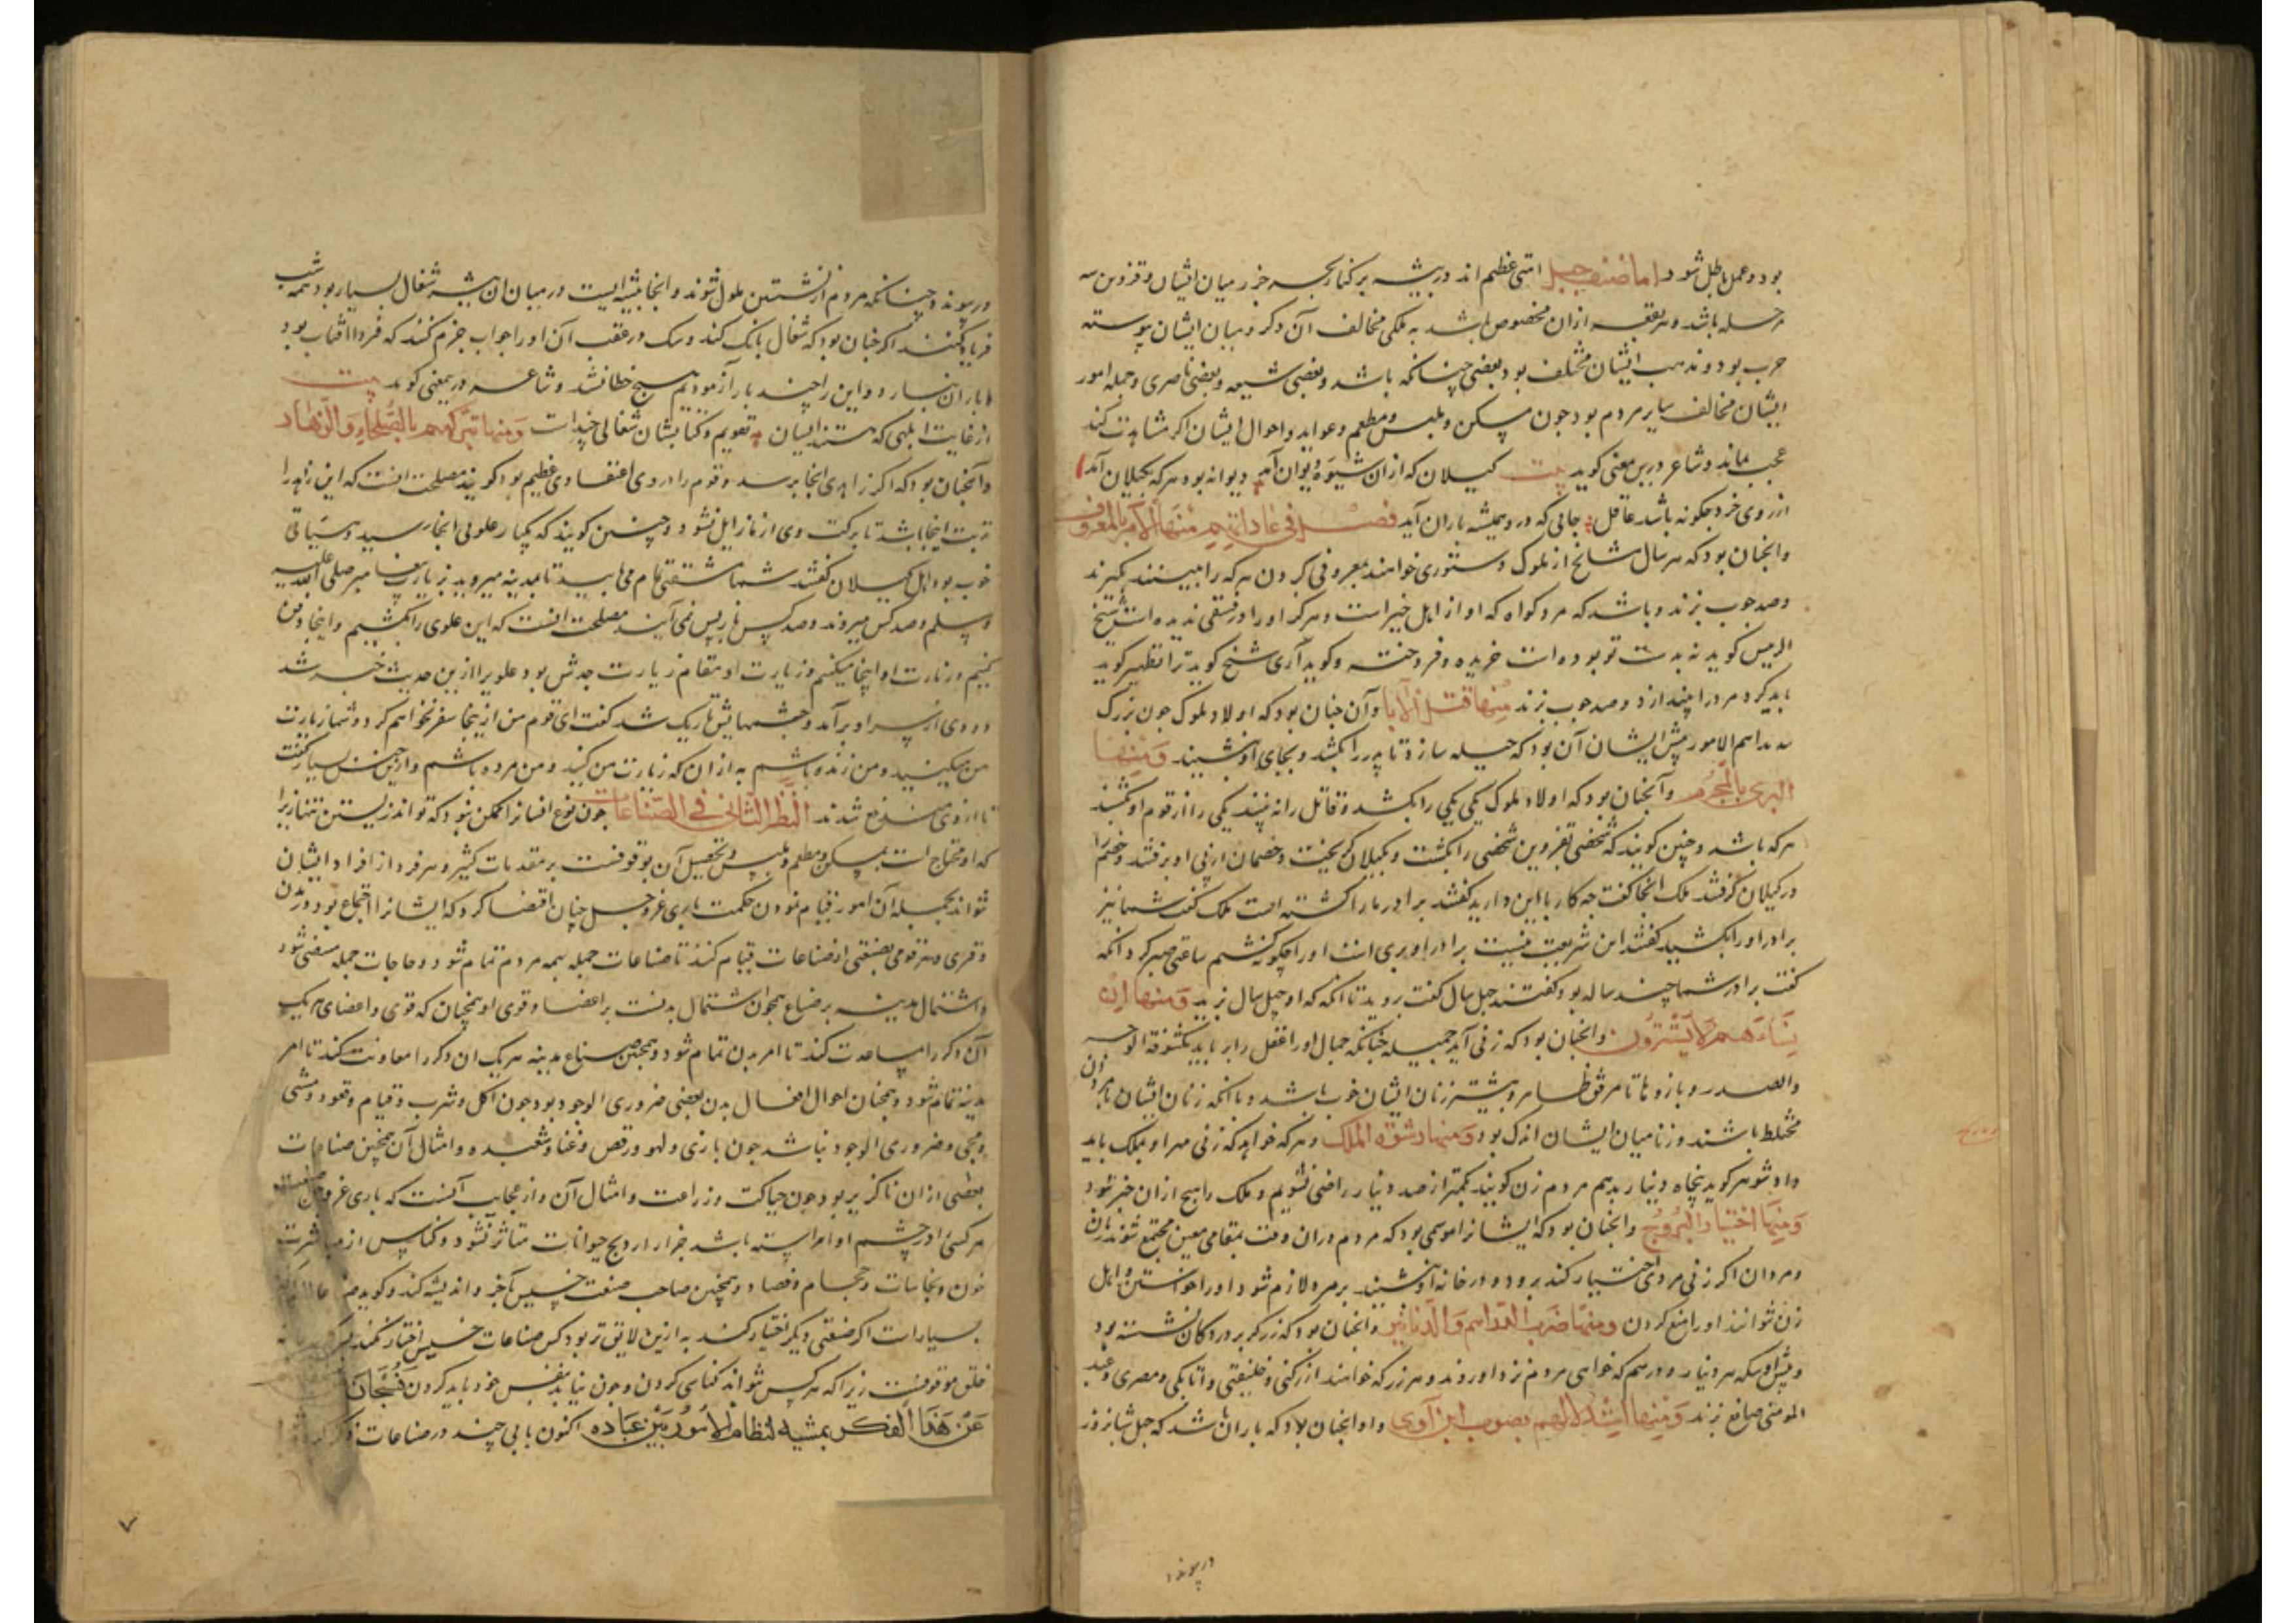 بود و عمل باطل شود اما صنف جیل امتی عظیم اند در بیشه بر کنار بحر خزر میان ایشان و قزوین سه
مرحله باشد و هر بقعه از ان مخصوص باشد به ملکی مخالف آن دکر و میان ایشان پیوسته
حرب بود و مذهب ایشان مختلف بود بعضی چنانکه باشد و بعضی شیعه و بعضی ناصری و جمله امور
ایشان مخالف سایر مردم بود جون مسکن و ملبس و مطعم و عواید و احوال ایشان اکر مشاهدت کند
عجب بماند و شاعر درین معنی کوید بیت کیلان که ازان شیوه دیوان آید دیوانه بود هر که بکیلان آید
از روی خرد جکونه باشد عاقل جایی که درو همیشه باران آید فصل فی عاداتهم منها الامر بالمعروف
و انجنان بود که هر سال مشایخ از ملوک دستوری خواهند بمعروفی کردن هر که را ببینند بکیرند
و صد جوب بزنند و باشد که مرد کواه که او از اهل خیر است و هرکز او را در فسقی ندیده است شیخ
کوید نه بدست تو بوده است خریده و فروخته و کوید آری شیخ کوید ترا تطهیر کوید
باید کرد مرد را بیندازد و صد جوب بزند منها قتل الابا و آن جنان بود که اولاد ملوک جون بزرک
شدند اهم الامور پیش ایشان آن بود که حیله سازد تا پدر را بکشد و بجای او نشیند و منها
البری بالمجرم و آنجنان بود که اولاد ملوک یکی یکی را بکشد و قاتل را نه بینند یکی را از قوم او بکشند
هر که باشد و چنین کویند که شخصی بقزوین شخصی را بکشت و بکیلان کریخت و خصمان از پی او برفتند و خصم را
در کیلان کرفتند ملک انجا کفت جه کار با این دارید کفتند برادر ما را کشته است ملک کفت شما نیز
برادر او را بکشید کفتند این شریعت نیست برادر او بری است او را چکونه کشیم ساعتی صبر کرد آنکه
کفت برادر شما چند ساله بود کفتند جهل سال کفت روید تا آنکه که او جهل سال زید و منها ان
نساءهم لا یستترون و انجنان بود که زنی آید جمیله جنانکه جمال او را عقل را برباید مکشوفة الوجه
والصدر و بازوها تا مرفق ظاهر و بیشتر زنان ایشان خوب باشد و با آنکه زنان ایشان با مردان
مختلط باشند و زنا میان ایشان اندک بود و منها رشوة الملک و هر که خواهد که زنی مهر او بملک باید
داد شوهر کوید پنجاه دینار بدهم مردم زن کویند بکمتر از صد دینار راضی نشویم و ملک را هیج از ان خبر نبود
و منها اختیار البروج و انجنان بود که ایشانرا موسمی بود که مردم دران وقت بمقامی معین مجتمع شوند زنان
و مردان اکر زنی مردی اختیار کند برود و در خانه او نشیند بر مرد لازم شود او را خواستن و اهل
زن نتوانند او را منع کردن و منها ضرب الدراهم والدنانیر و انجنان بود که زرکر بر در دکان نشسته بود
و پیش او سکه هر دینار و درهم که خواهی مردم نزد او روند و هر زر که خواهند از رکنی و خلیفتی و اتابکی و مصری و عبد
المومنی صانع بزند و منها استدلالهم بصوت ابن آوی و او انجنان بود که باران باشد که جهل شبانروز
درپیوندد
در پیوندد چنانکه مردم از نشستن ملول شوند و انجا بیشه ایست در میان ان بیشه شغال بسیار بود همه شب
فریاد کنند اکر جنان بود که شغال بانک کند و سک در عقب آن او را جواب جزم کنند که فردا آفتاب بود
یا باران نبارد و این را چند بار آزمودیم هیچ خطا نشد و شاعر درین معنی کوید بیت
از غایت ابلهی که هستند ایشان تقویم و کتابشان شغالی چند است و منها تبرکهم بالصلحاء والزهاد
و آنجنان بود که اکر زاهدی انجا برسد و قوم را در وی اعتقادی عظیم بود کویند مصلحت انست که این زاهد را
تربت اینجا باشد تا برکت وی از ما زایل نشود و چنین کویند که یکبار علوی انجا رسید و سیاقی
خوب بود اهل کیلان کفتند شما مشقتی تمام می یابید تا مدینه میروید بزیارت پیغامبر صلی الله علیه
و سلم و صد کس میروند و صد کس باز پس نمی آیند مصلحت انست که این علوی را بکشیم و اینجا دفن
کنیم و زیارت او اینجا میکنیم و زیارت او مقام زیارت جدش بود علوی را ازین حدیث خبر شد
دود از سر او برآمد و جشمهایش تاریک شد کفت ای قوم من از ینجا سفر نخواهم کرد و شما زیارت
من میکنید و من زنده باشم به از ان که زیارت من کنید و من مرده باشم و ازین جنس بسیار کفت
تا از وی متفرع شدند النظر الثانی فی الصناعات جون نوع انسانرا ممکن نبود که تواند زیستن تنها زیرا
که او محتاج است بمسکن و مطعم و ملبس و تحصیل آن موقوفست بر مقدمات کثیر و هر فرد از افراد ایشان
نتواند بجمله آن امور قیام نمودن حکمت باری عز و جل چنان اقتضا کرد که ایشانرا اجتماع بود در مدن
و قری و هر قومی بصنعتی از صناعات قیام کنند تا صناعات جمله بهمه مردم تمام شود و حاجات جمله منقضی شود
و اشتمال مدینه بر صناع همجون اشتمال بدنست بر اعضا و قوی او همجنان که قوی و اعضای هر یک
آن دکر را مساعدت کند تا امر بدن تمام شود و همجنین صناع مدینه هر یک ان دکر را معاونت کند تا امر
مدینه تمام شود و همجنان احوال افعال بدن بعضی ضروری الوجود بود جون اکل و شرب و قیام و قعود و مشی
و بعضی ضروری الوجود نباشد جون بازی و لهو و رقص و غنا و شعبده و امثال آن همچنین صناعات
بعضی از ان ناکزیر بود جون حیاکت و زراعت و امثال آن و از عجایب آنست که باری عز و جل صنعت
هر کسی در چشم او آراسته باشد جزار از ذبح حیوانات متاثر نشود و کناس از مباشرت
خون و نجاسات و حجام و فصاد و همچنین صاحب صنعت خسیس بآخر و اندیشه کند و کوید
بسیارات اکر صنعتی دیکر اختیار کند به ازین لایق تر بود کس صناعات خسیس اختیار نکند
خلق موقوفست زیرا که هر کس نتواند کناسی کردن و جون نیابد بنفس خود باید کردن فسبحان
عن هذا الفکر بمشیه لنظام الامور بین عباده اکنون بابی چند در صناعات ذکر کنیم
۷